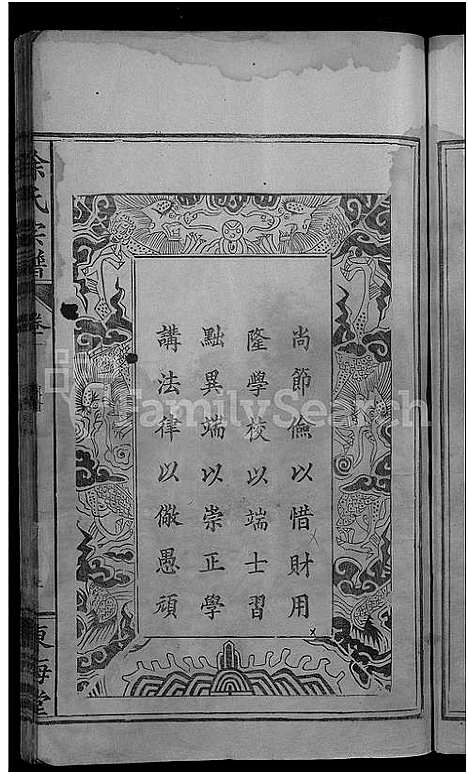 尚節儉以惜財用
隆學校以端士習
黜異端以崇正學
講法律以儆愚頑
徐氏宗譜
卷一
東海堂
FamilySearch